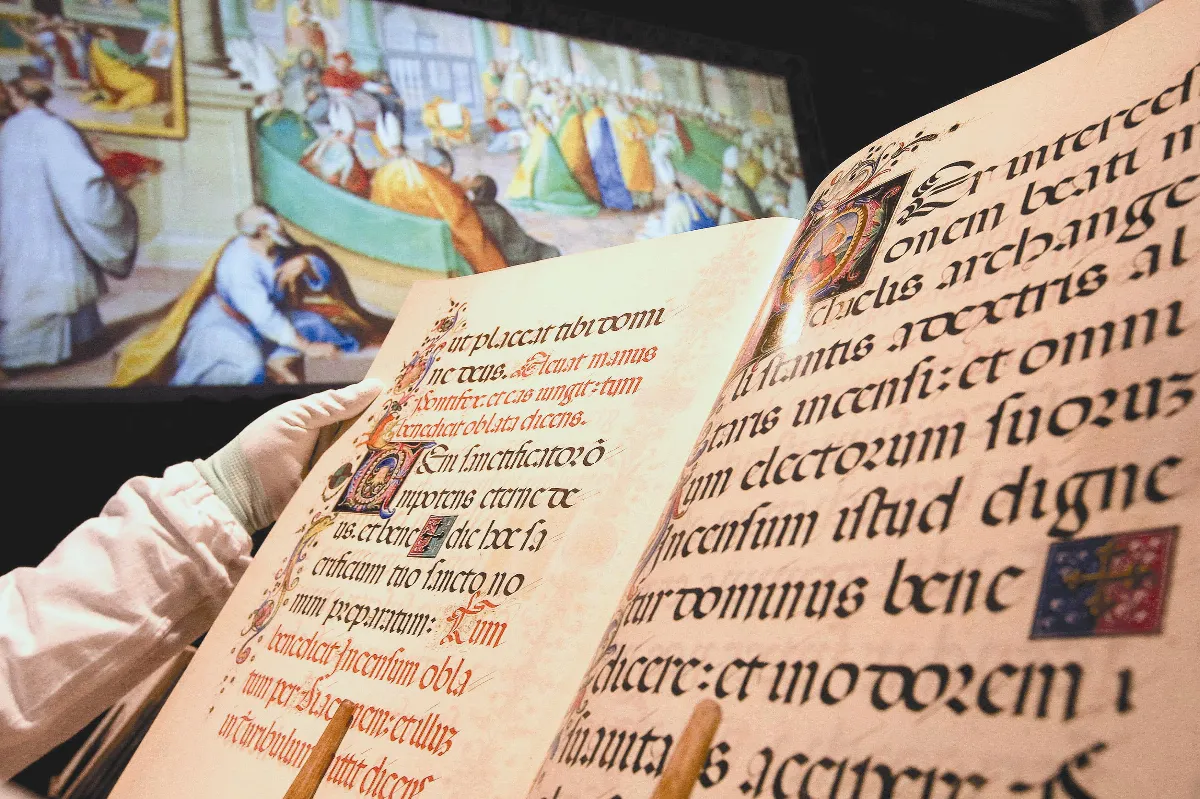 ut placeat tibi domi
ne deus. Eleuat manus
Pontifex. et eas iungit: tum
benedicit oblata dicens.
VEni sanctificator õ
mnipotens eterne de
us. et bene dic hoc sa
crificium tuo sancto no
mini preparatum: Tum
benedicit Incensum obla
tum per Diaconem: et illuz
in turibulum mittit dicens
PEr intercessi
onem beati m
chaelis archange
li stantis a dextris al
taris incensi: et omni
um electorum suoruz
incensum istud digne
tur dominus bene
dicere: et in odorem
suauitatis accipere